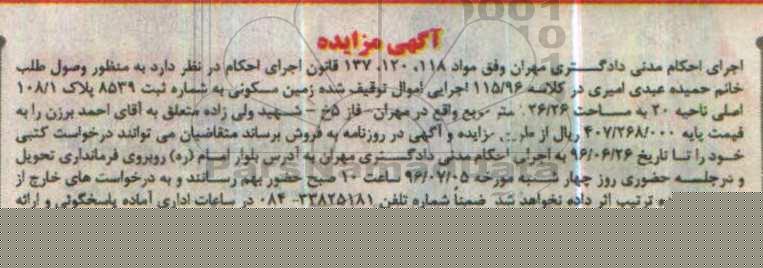 آگهی مزایده
اجرای احکام مدنی دادگستری مهران وفق مواد ۱۱۸، ۱۲۰، ۱۳۷ قانون اجرای احکام در نظر دارد به منظور وصول طلب
خانم حمیده عبدی امیری در کلاسه ۱۱۵/۹۶ اجرایی اموال توقیف شده زمین مسکونی به شماره ثبت ۸۵۳۹ پلاک ۱۰۸/۱
اصلی ناحیه ۲۰ به مساحت ۲۶/۲۶ متر مربع واقع در مهران- فاز ۵خ - شهید ولی زاده متعلق به آقای احمد برزن را به
قیمت پایه ۴۰۷/۲۶۸/۰۰۰ ریال از مزایده و آگهی در روزنامه به فروش برساند متقاضیان می توانند درخواست کتبی
خود را تا تاریخ ۹۶/۰۶/۲۶ به اجرای احکام مدنی دادگستری مهران به آدرس بلوار امام (ره) روبروی فرمانداری تحویل
و درجلسه حضوری روز چهار شنبه مورخه ۹۶/۰۷/۰۵ ساعت ۱۰ صبح حضور بهم رسانند و به درخواست های خارج از
و ترتیب اثر داده نخواهد شد ضمناً شماره تلفن ۳۳۸۲۵۱۸۱- ۰۸۴ در ساعات اداری آماده پاسخگوئی و ارائه